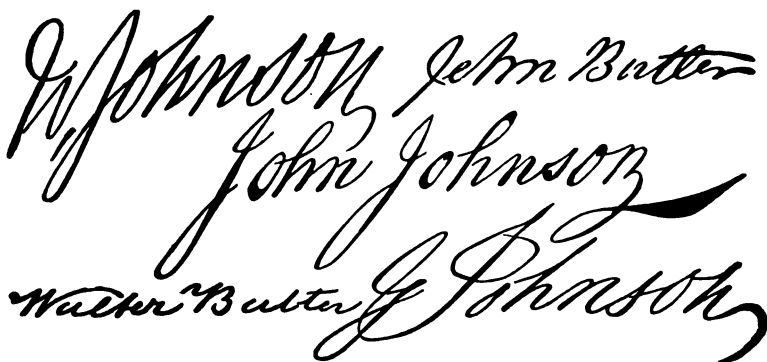 W Johnson John Butler
John Johnson
Walter Butler G Johnson